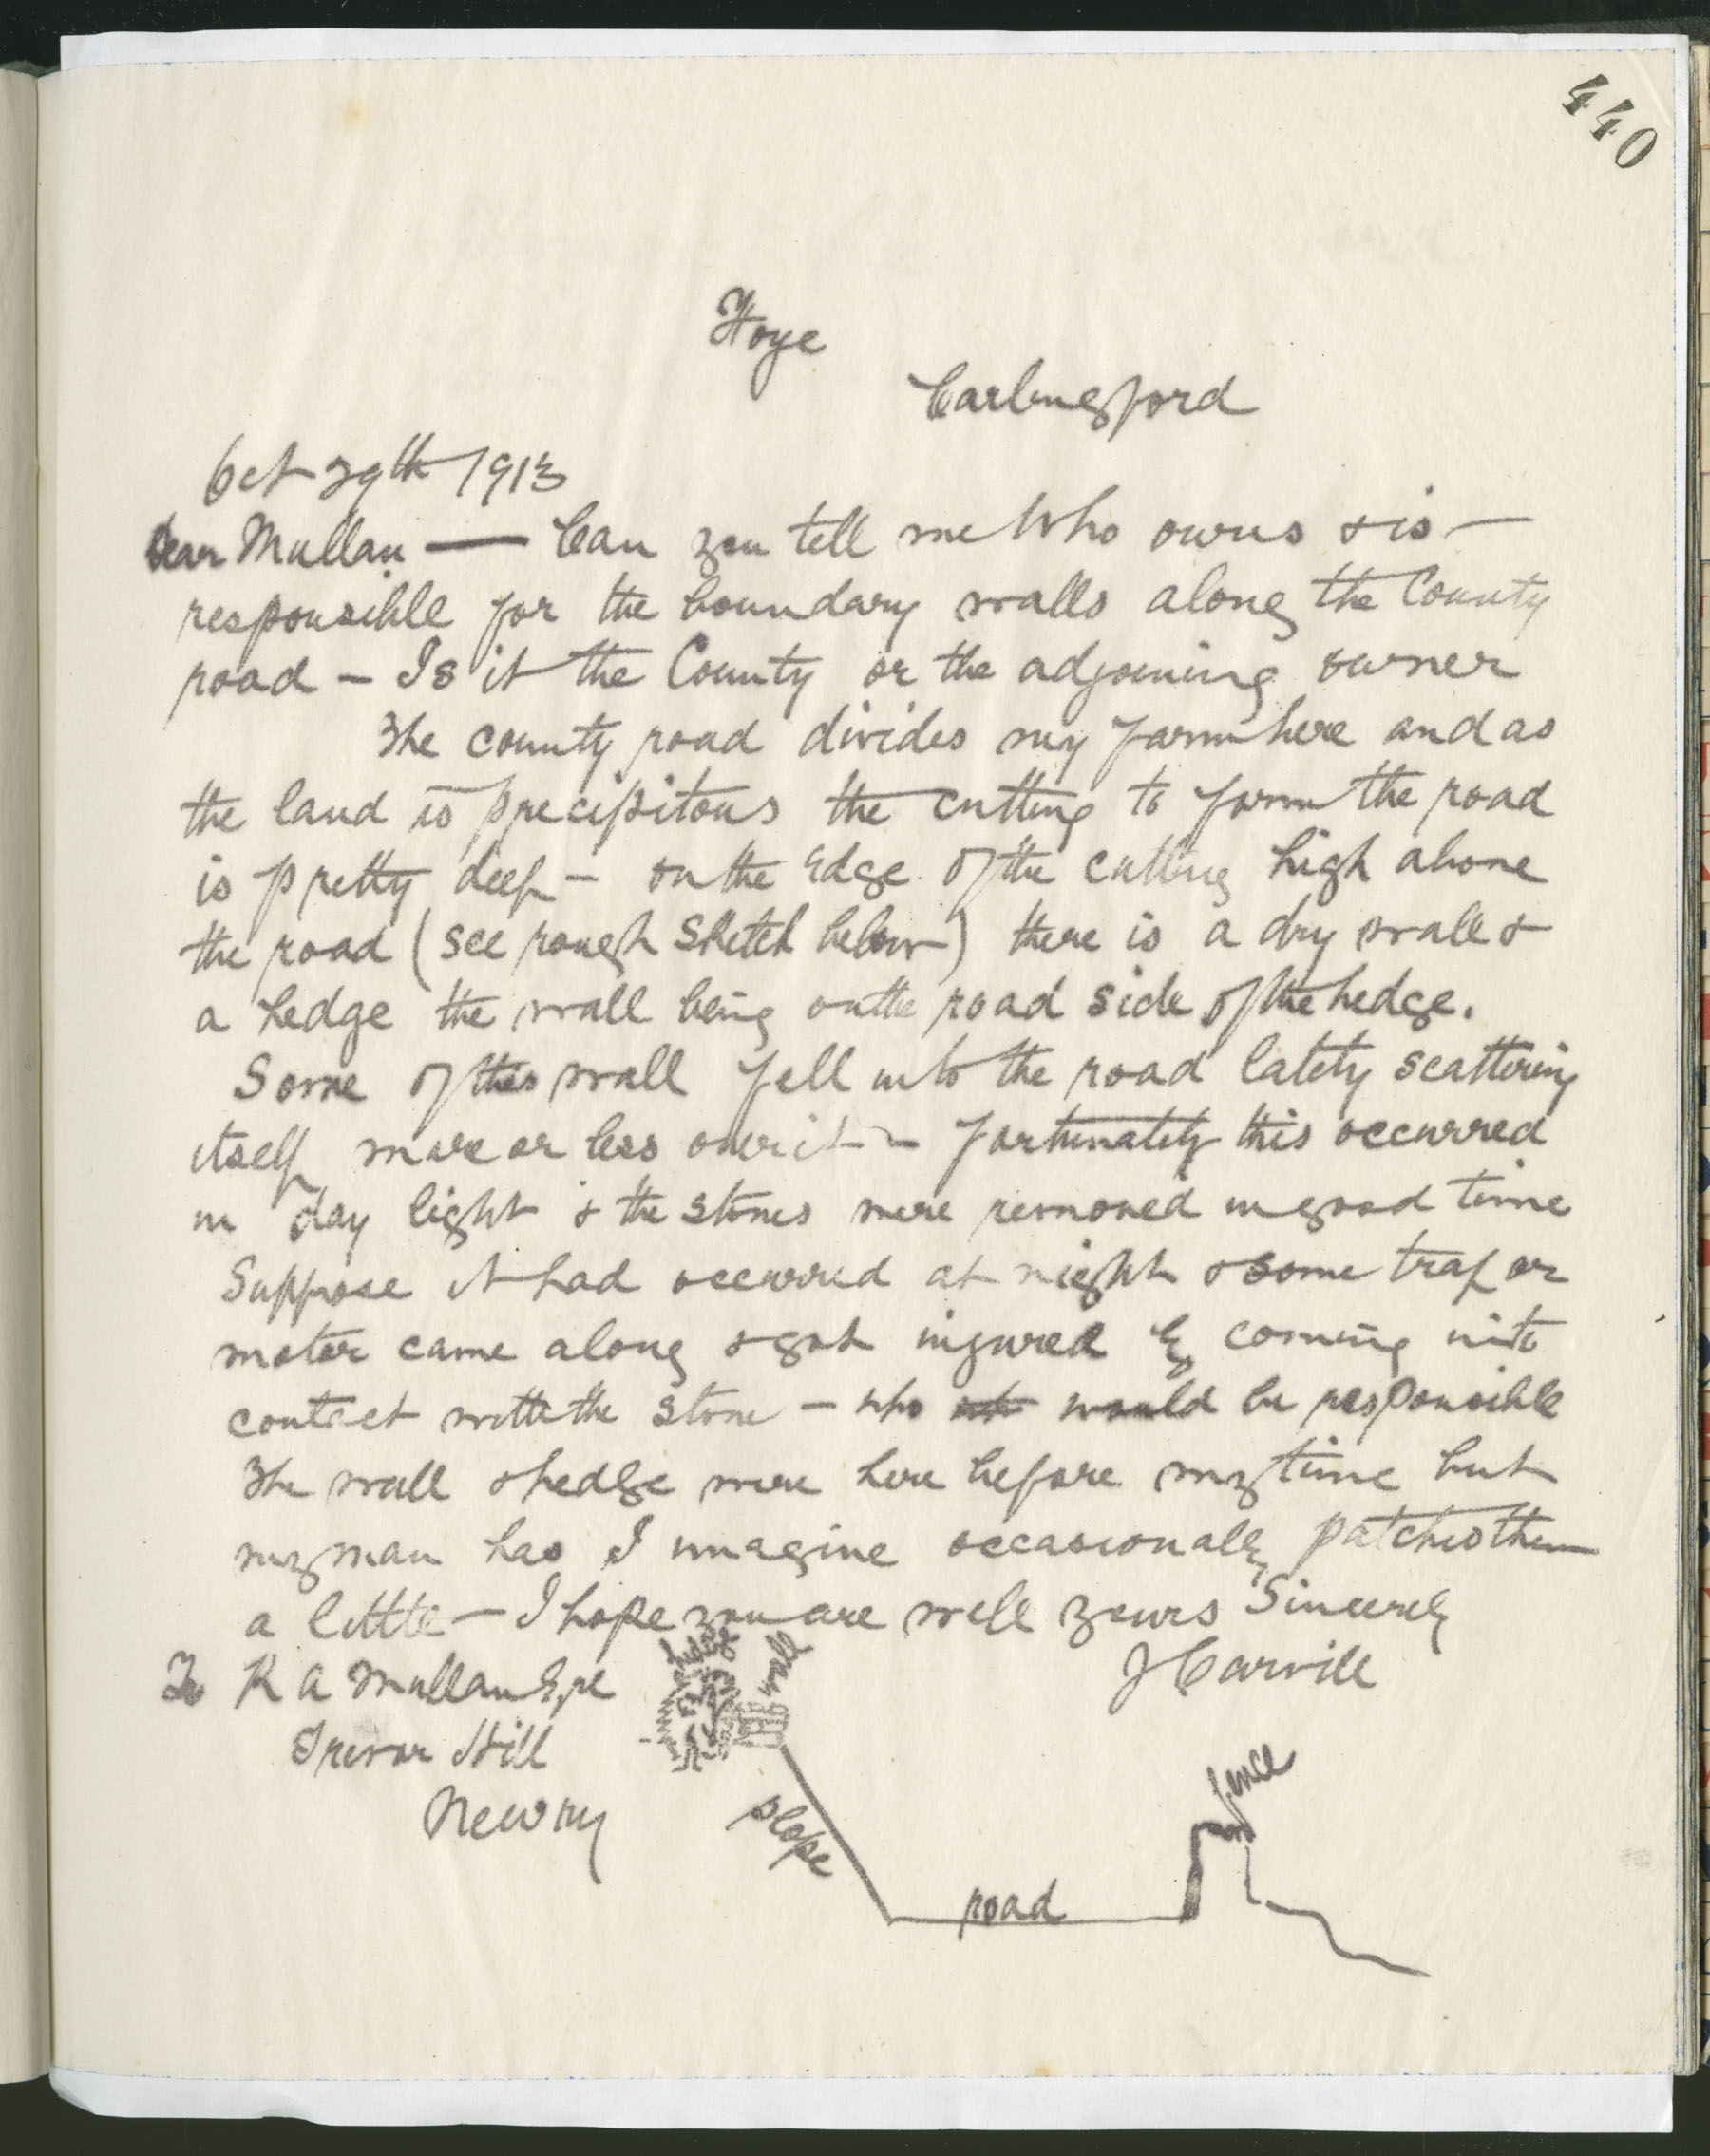 440
Hoye
Carlingford
Oct 29th 1913
Dear Mullan — Can you tell me who owns & is —
responsible for the boundary walls along the County
road — Is it the County or the adjoining owner
The county road divides my farm here and as
the land is precipitous the cutting to form the road
is pretty deep — on the edge of the cutting high above
the road (see rough sketch below) there is a dry wall &
a hedge the wall being on the road side of the hedge.
Some of this wall fell into the road lately scattering
itself more or less over it — fortunately this occurred
in day light & the stones were removed in good time
Suppose it had occurred at night & some trap or
motor came along & got injured by coming into
contact with the stone — who would be responsible
The wall & hedge were here before my time but
my man has I imagine occasionally patches them
a little — I hope you are well yours Sincerely
J Carvill
To R A Mullan Esqre
Trevor Hill
Newry
hedge
wall
slope
road
fence